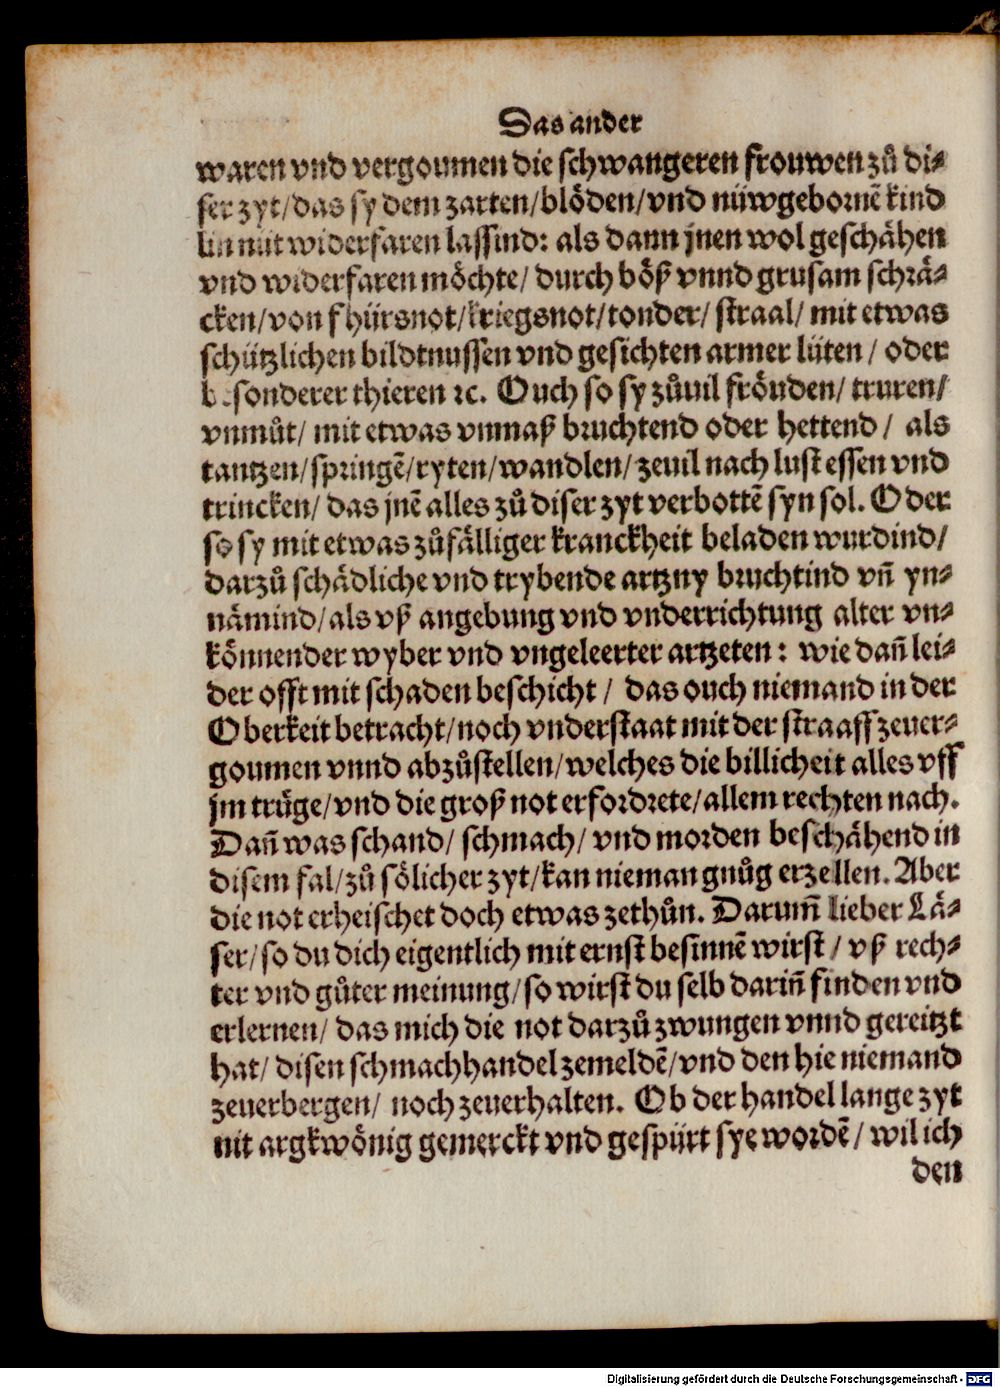 Das ander
waren vnd vergoumen die schwangeren frouwen zů di⸗
ser zyt/das sy dem zarten/blöden/vnd nüwgebornẽ kind
lin nüt widerfaren lassind: als dann jnen wol geschähen
vnd widerfaren möchte/ durch böß vnnd grusam schrä⸗
cken/von fhürsnot/kriegsnot/tonder/ straal/ mit etwas
schützlichen bildtnussen vnd gesichten armer lüten / oder
besonderer thieren ꝛc. Ouch so sy zůuil fröuden/ truren/
vnmůt/ mit etwas vnmaß bruchtend oder hettend / als
tantzen/springẽ/ryten/wandlen/zeuil nach lust essen vnd
trincken/ das jnẽ alles zů diser zyt verbottẽ syn sol. Oder
so sy mit etwas zůfälliger kranckheit beladen wurdind/
darzů schädliche vnd trybende artzny bruchtind vñ yn⸗
nämind/als vß angebung vnd vnderrichtung alter vn⸗
könnender wyber vnd vngeleerter artzeten: wie dañ lei⸗
der offt mit schaden beschicht / das ouch niemand in der
Oberkeit betracht/noch vnderstaat mit der straaff zeuer⸗
goumen vnnd abzůstellen/welches die billicheit alles vff
jm trüge/vnd die groß not erfordrete/allem rechten nach.
Dañ was schand/ schmach/ vnd morden beschähend in
disem fal/zů sölicher zyt/kan nieman gnůg erzellen. Aber
die not erheischet doch etwas zethůn. Darum̃ lieber Lä⸗
ser/so du dich eigentlich mit ernst besinnẽ wirst / vß rech⸗
ter vnd gůter meinung/so wirst du selb dariñ finden vnd
erlernen/ das mich die not darzů zwungen vnnd gereitzt
hat/ disen schmachhandel zemeldẽ/vnd den hie niemand
zeuerbergen/ noch zeuerhalten. Ob der handel lange zyt
nit argkwönig gemerckt vnd gespürt sye wordẽ/ wil ich
den
Digitalisierung gefördert durch die Deutsche Forschungsgemeinschaft - DFG